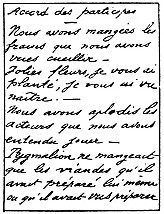 Accord des participes
Nous avons mangées les
fraises que nous avons
vues cueillir —
Jolies fleurs, je vous ai
planté, je vous ai vu
naître. —
Nous avons aplodis les
acteurs que nous avons
entendu jouer —
Pygmalion ne mangeait
que les viandes qu'il
avait préparé lui même
ou qu'il avait vues préparer